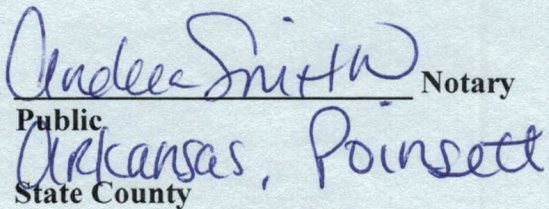 Andrea Smith Notary
Public
Arkansas, Poinsett
State County